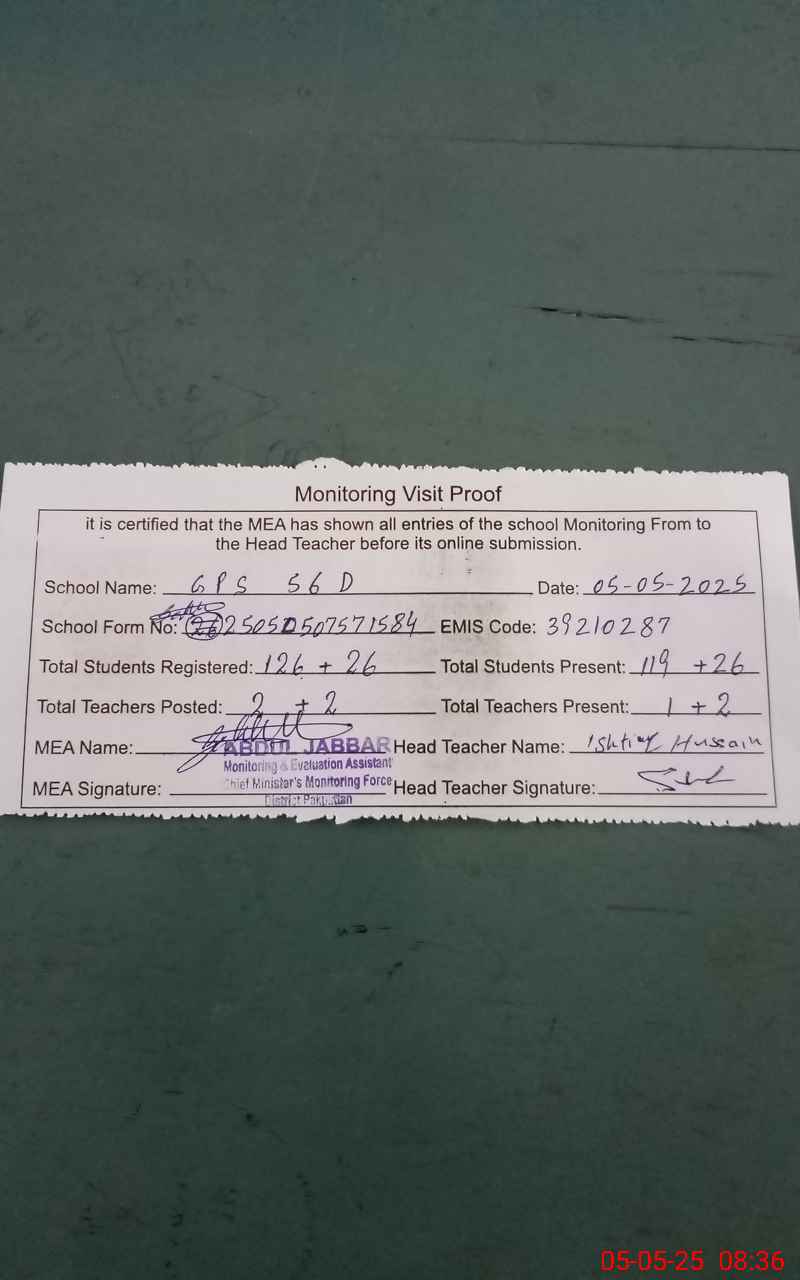 Monitoring Visit Proof
it is certified that the MEA has shown all entries of the school Monitoring From to
the Head Teacher before its online submission.
School Name: GPS 56 D Date: 05-05-2025
School Form No: 25050507571584 EMIS Code: 39210287
Total Students Registered: 126 + 26 Total Students Present: 119 + 26
Total Teachers Posted: 2 + 2 Total Teachers Present: 1 + 2
MEA Name: ABDUL JABBAR Head Teacher Name: Ishtiaq Hussain
Monitoring & Evaluation Assistant
Chief Minister's Monitoring Force
MEA Signature: Head Teacher Signature:
District Pakpattan
05-05-25 08:36